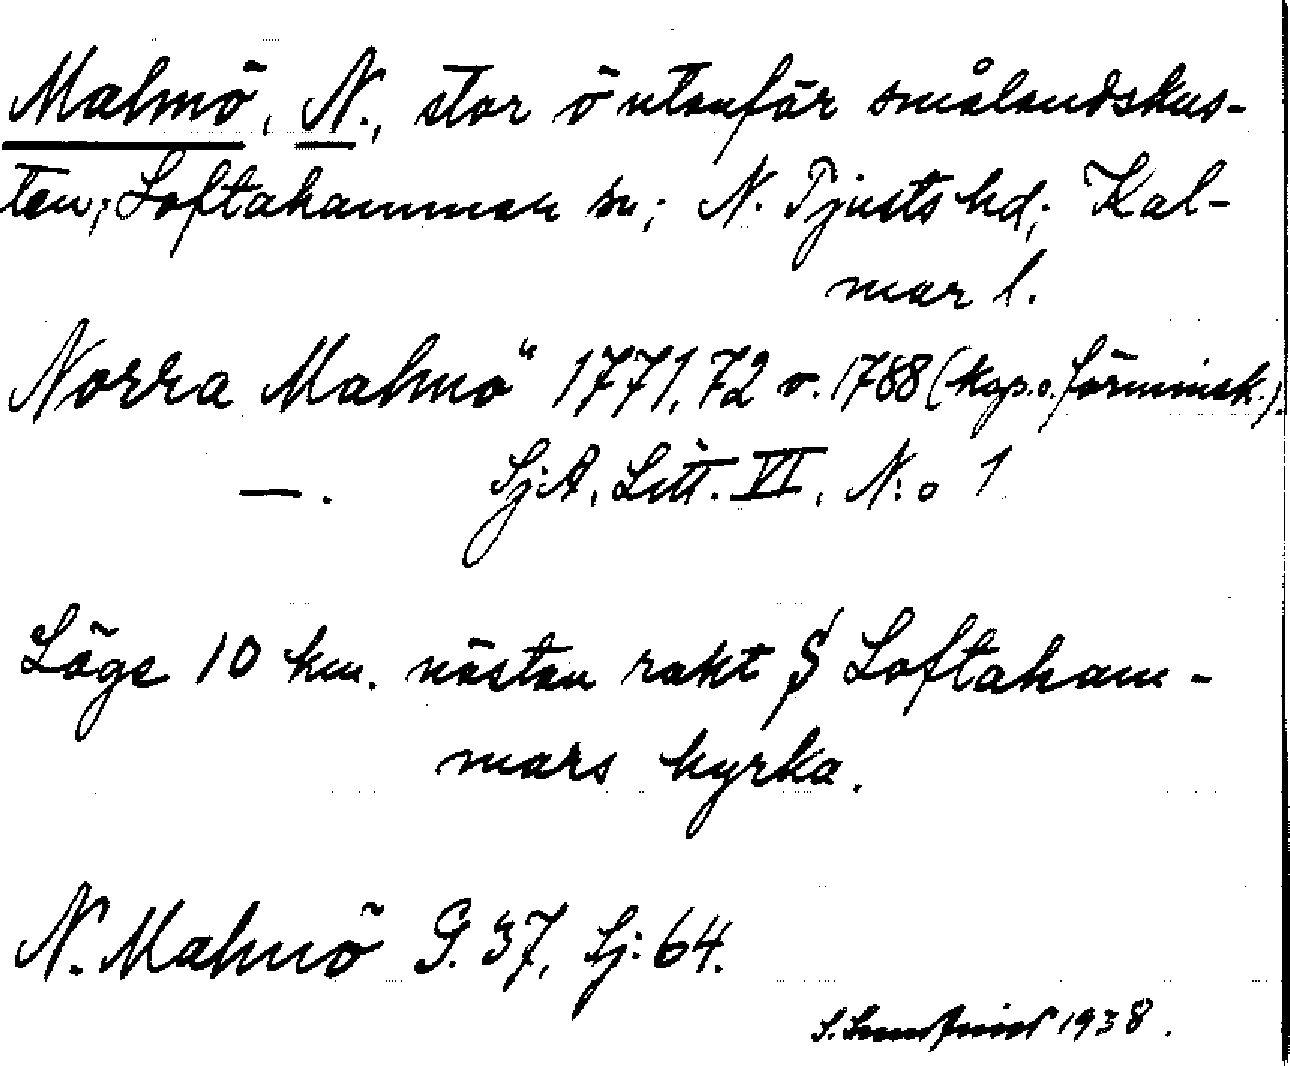 Malmö, N., stor ö utanför smålandskus-
ten; Loftahammar sn; N. Tjusts hd; Kal-
mar l.
Norra Malmö 1771,72 o. 1788 (kop. o. förminsk.).
—. Sj:A. Litt. VI, N:o 1
Läge 10 km. nästan rakt S Loftaham-
mars kyrka.
N. Malmö G. 37, Sj: 64.
1938.